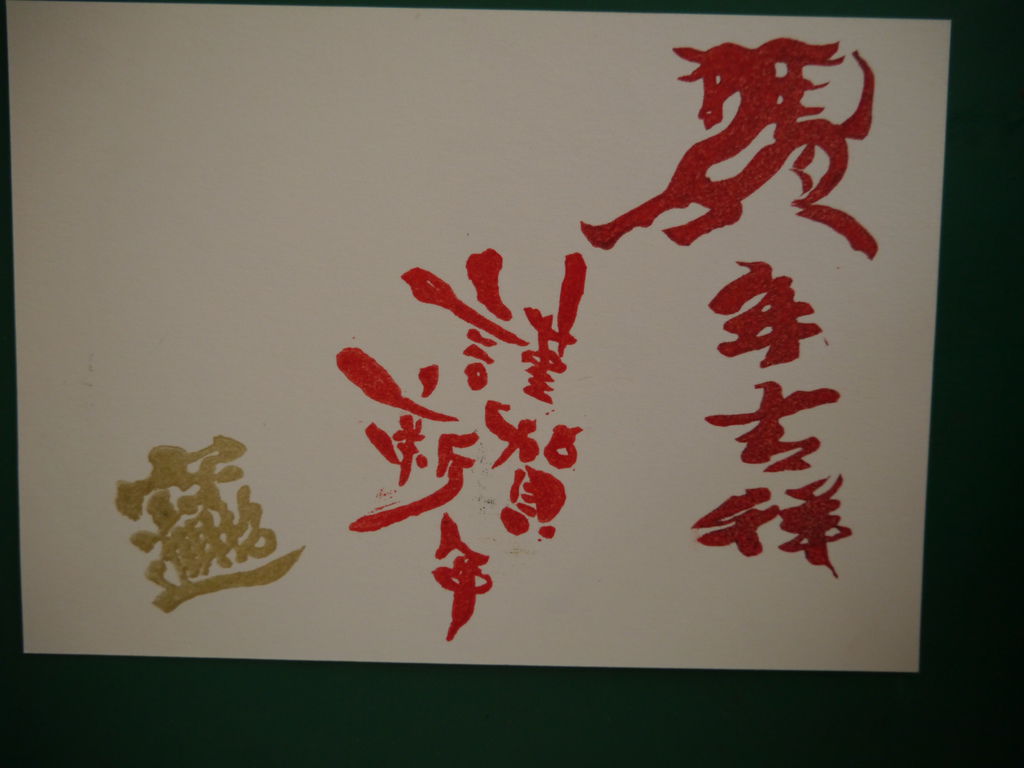 馬年吉祥
謹賀
新年